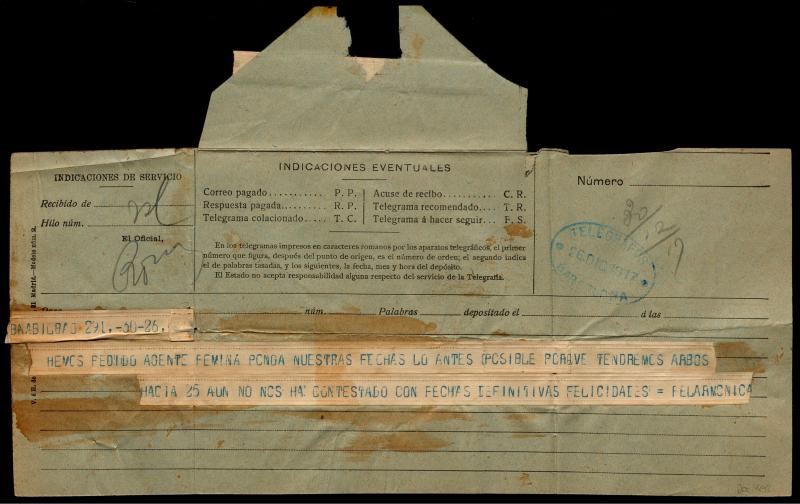 INDICACIONES DE SERVICIO
Recibido de
Hilo núm.
El Oficial,
INDICACIONES EVENTUALES
Correo pagado........... P. P.
Respuesta pagada........ R. P.
Telegrama colacionado.... T. C.
Acuse de recibo.......... C. R.
Telegrama recomendado.... T. R.
Telegrama á hacer seguir... F. S.
En los telegramas impresos en caracteres romanos por los aparatos telegráficos, el primer
número que figura, después del punto de origen, es el número de orden; el segundo indica
el de palabras tasadas, y los siguientes, la fecha, mes y hora del depósito.
El Estado no acepta responsabilidad alguna respecto del servicio de la Telegrafía.
Número
20/12/17
TELEGRAFOS
26 DIC 1917
BARCELONA
núm. Palabras depositado el á las
BRABILBAO 291.-30-26.
HEMOS PEDIDO AGENTE FEMINA PONGA NUESTRAS FECHAS LO ANTES OPOSIBLE PORQUE TENDREMOS ARBOS
HACIA 25 AUN NO NOS HA CONTESTADO CON FECHAS DEFINITIVAS FELICIDADES = FELARMONICA